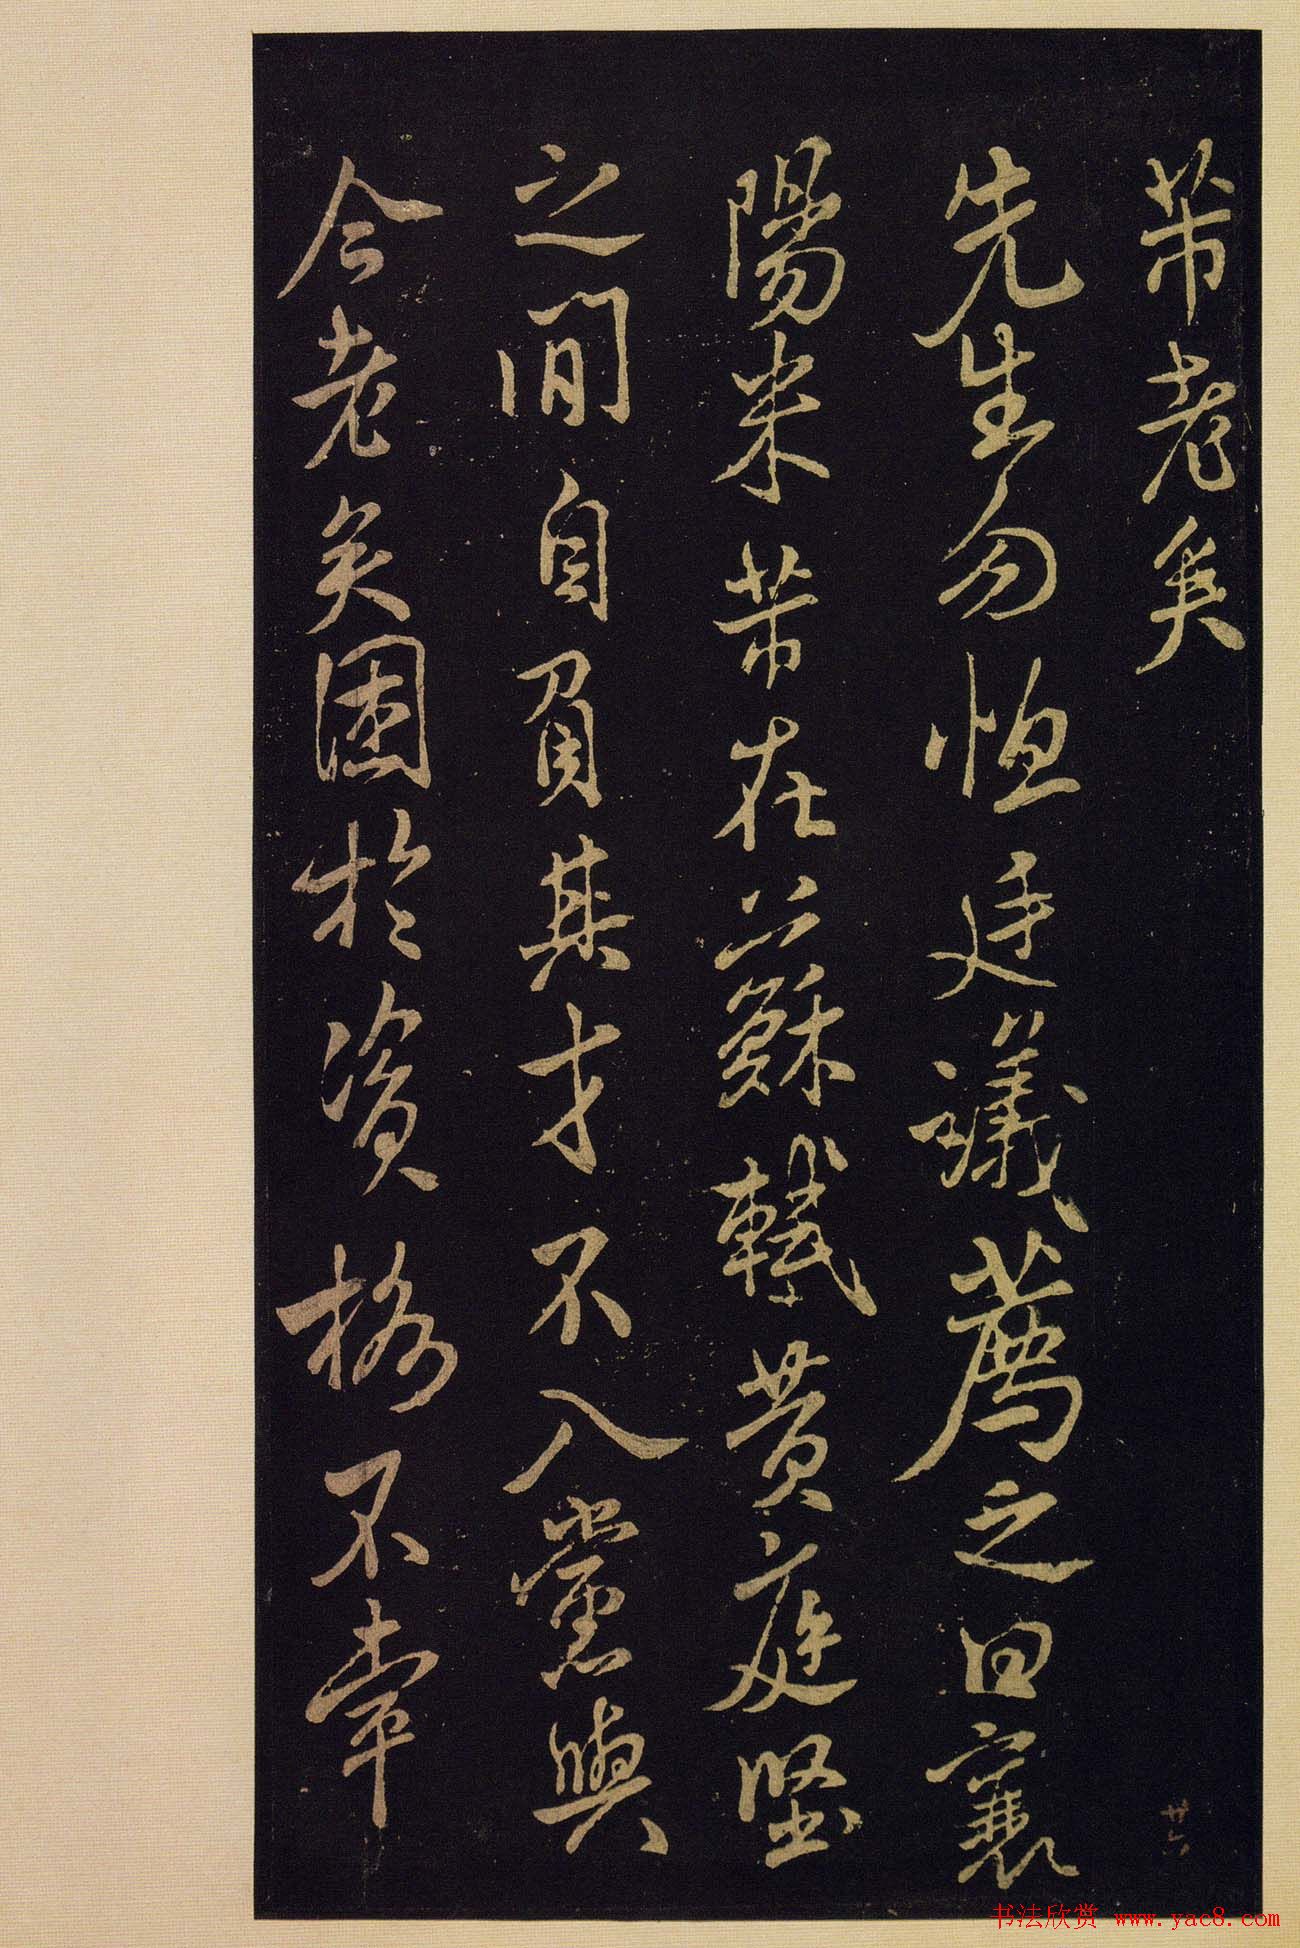 芾老矣
先生勿恤廷議薦之曰襄
陽米芾在蘇軾黄庭堅
之間自負其才不入黨與
今老矣困於資格不幸
廿六
书法欣赏 www.yac8.com